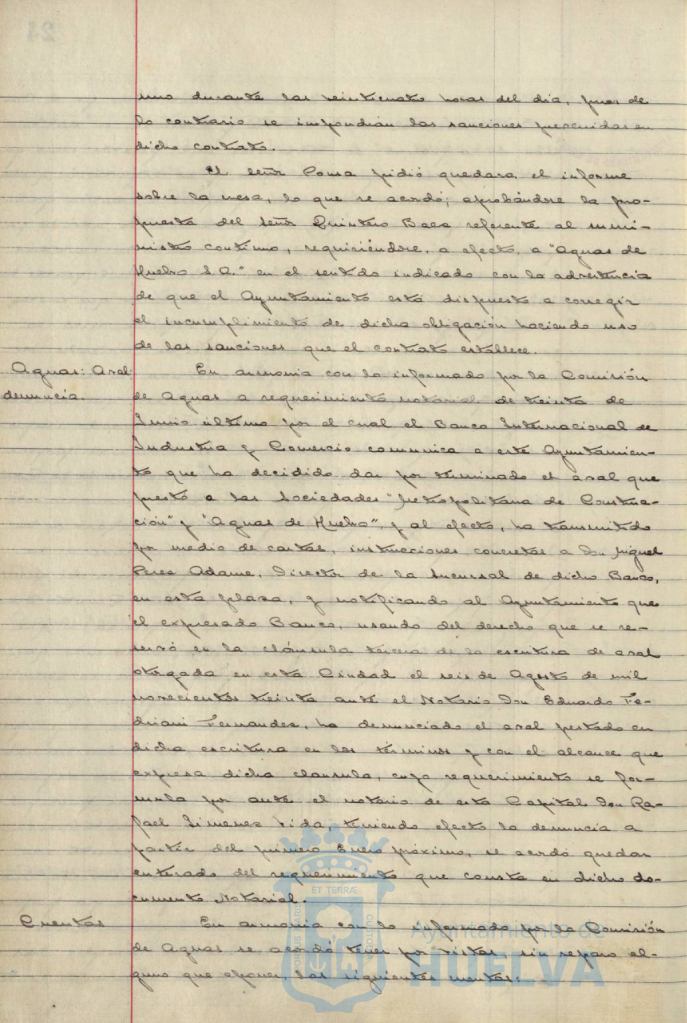 uno durante las veinticuatro horas del día, pues de
lo contrario se impondrán las sanciones prevenidas en
dicho contrato.
El señor Ponsa pidió quedara, el informe
sobre la mesa, lo que se acordó; aprobándose la pro-
puesta del señor Quintero Baez referente al sumi-
nistro contínuo, requiriéndose, a efecto, a "Aguas de
Huelva S.A." en el sentido indicado con la advertencia
de que el Ayuntamiento está dispuesto a corregir
el incumplimiento de dicha obligación haciendo uso
de las sanciones que el contrato establece.
Aguas: Aval
denuncia.
En armonia con lo informado por la Comisión
de Aguas a requerimiento notarial de treinta de
Junio último por el cual el Banco Internacional de
Industria y Comercio comunica a este Ayuntamien-
to que ha decidido dar por terminado el aval que
prestó a las Sociedades "Metropolitana de Construc-
ción" y "Aguas de Huelva", y al efecto, ha transmitido
por medio de cartas, instrucciones concretas a Don Miguel
Perez Adame, Director de la Sucursal de dicho Banco,
en esta plaza, y notificando al Ayuntamiento que
el expresado Banco, usando del derecho que se re-
servó en la cláusula tercera de la escritura de aval
otorgada en esta Ciudad el seis de Agosto de mil
novecientos treinta ante el Notario Don Eduardo Fe-
driani Fernandez, ha denunciado el aval prestado en
dicha escritura en los términos y con el alcance que
expresa dicha clausula, cuyo requerimiento se for-
mula por ante el notario de esta Capital Don Ra-
fael Jimenez Vida, teniendo efecto la denuncia a
partir del primero Enero próximo, se acordó quedar
enterado del requerimiento que consta en dicho do-
cumento Notarial.
Cuentas
En armonia con lo informado por la Comisión
de Aguas se acordó tener por vistas, sin reparo al-
guno que oponer, las siguientes cuentas:
ET TERRÆ
Ayuntamiento de
HUELVA